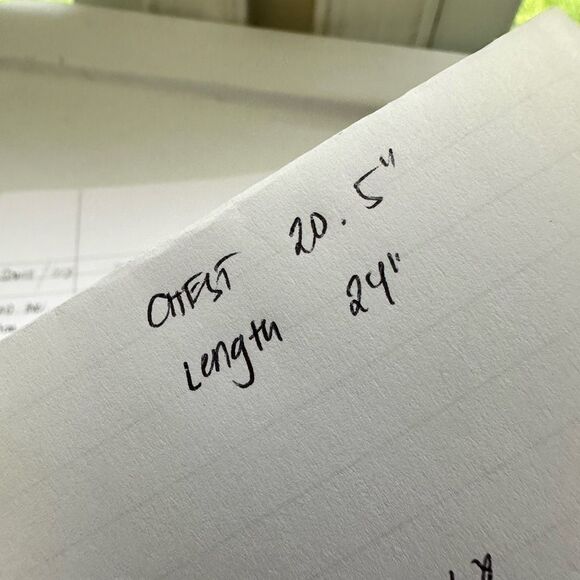 CHEST 20.5"
Length 24"